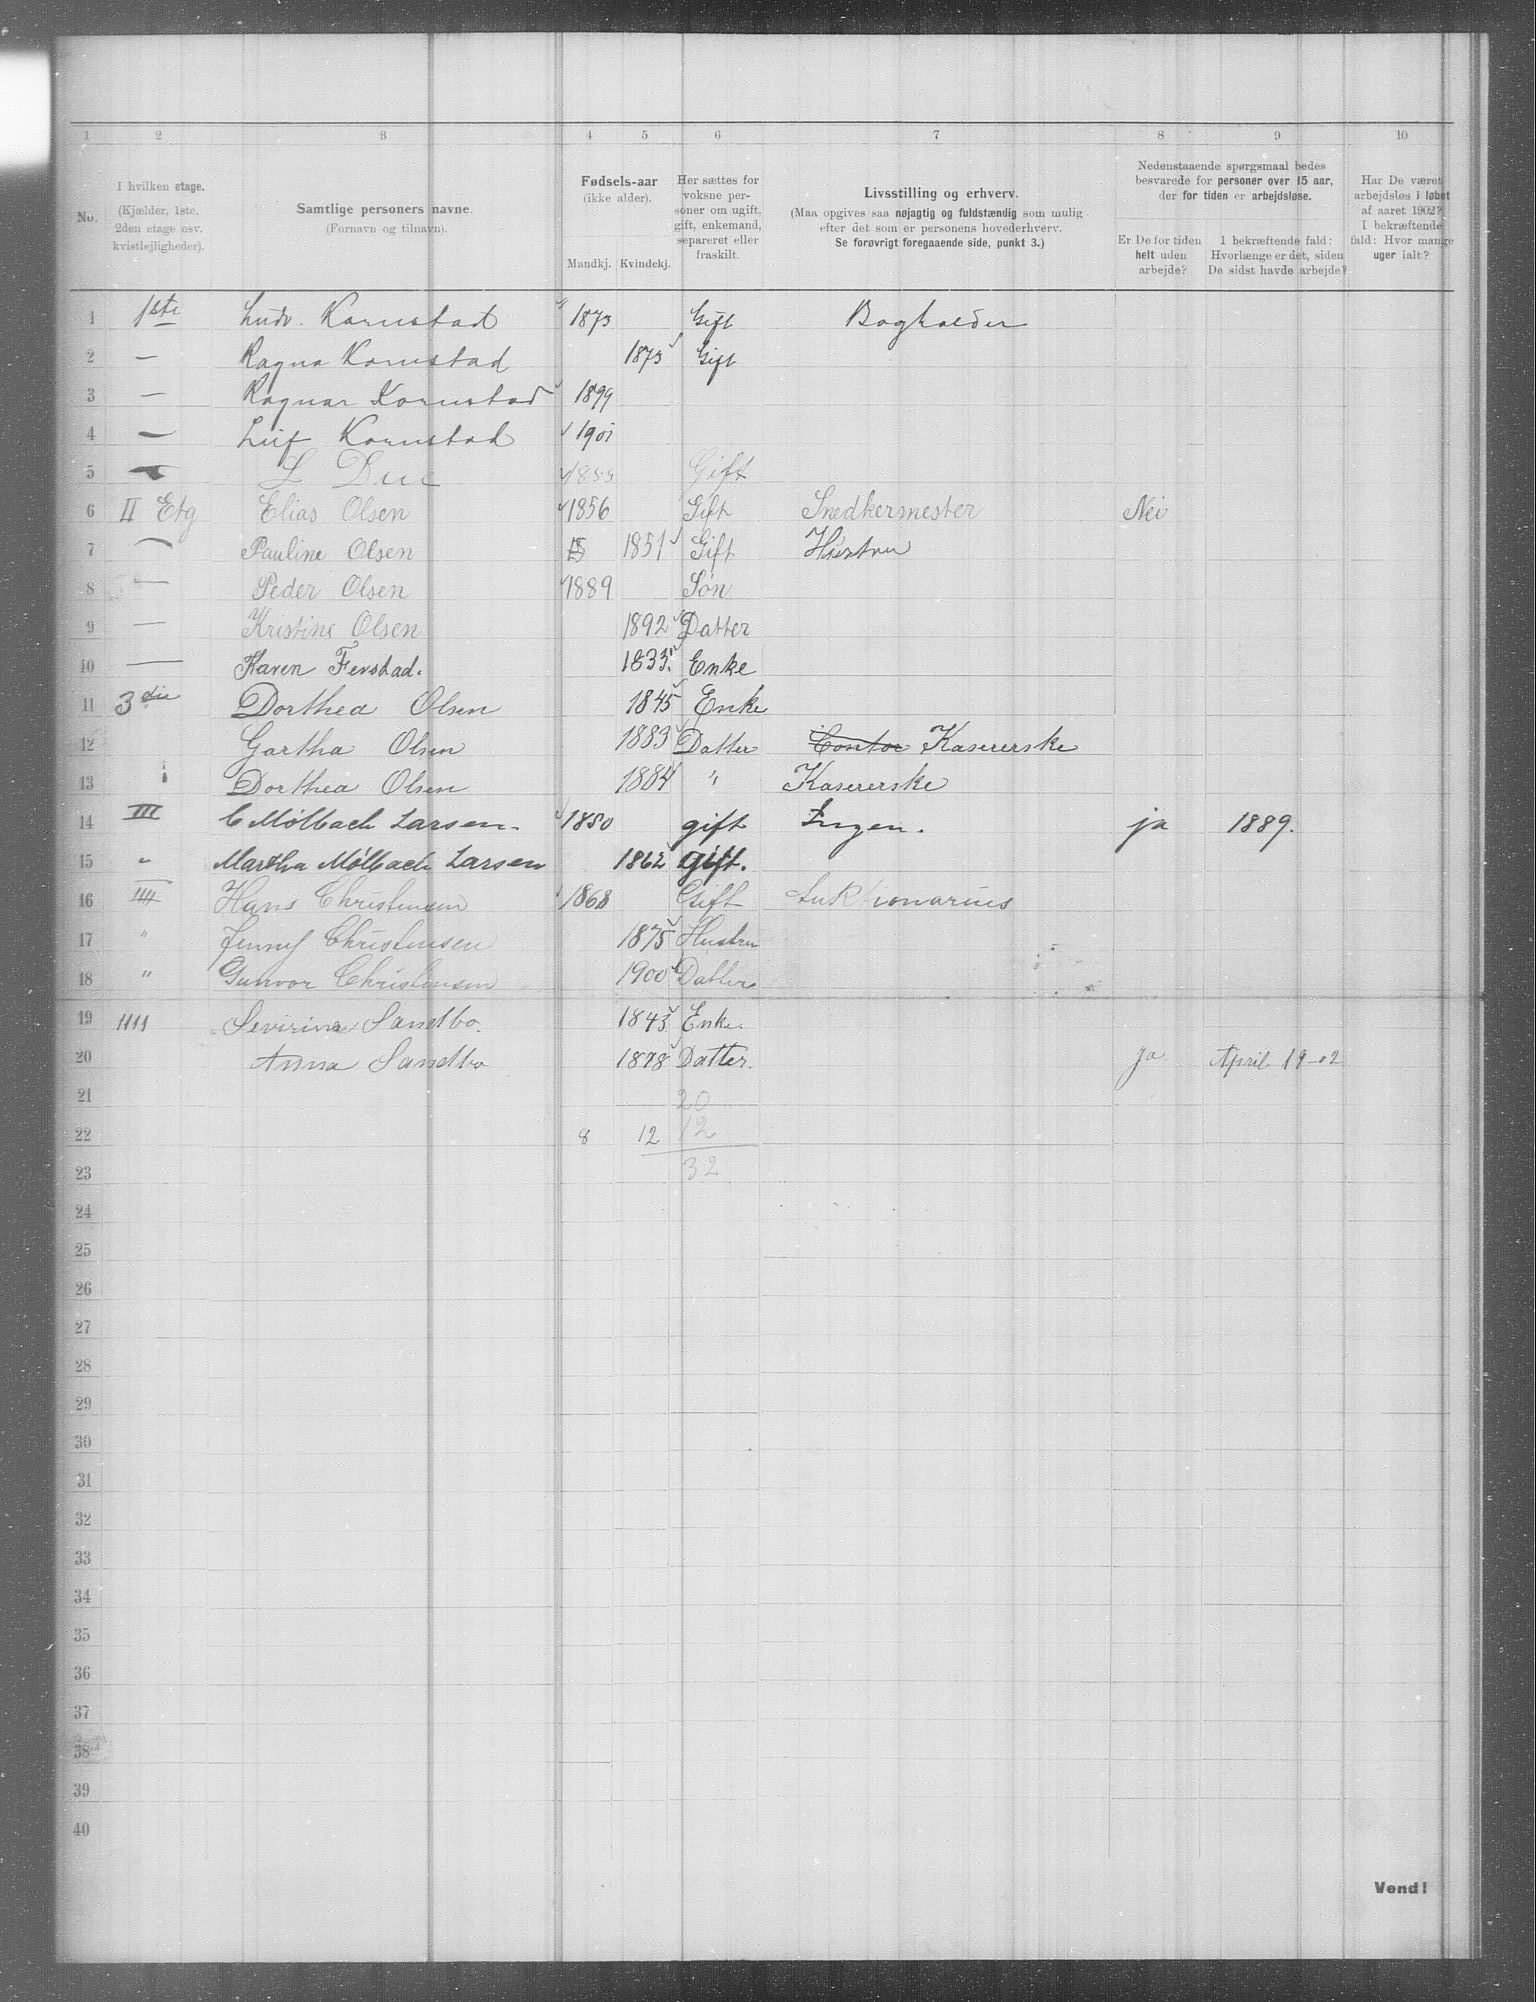 1 2 3 4 5 6 7 8 9 10
No.
I hvilken etage.
(Kjælder, 1ste, 2den etage osv. kvistlejligheder).
Samtlige personers navne.
(Fornavn og tilnavn).
Fødsels-aar
(ikke alder).
Mandkj. Kvindekj.
Her sættes for voksne personer om ugift, gift, enkemand, separeret eller fraskilt.
Livsstilling og erhverv.
(Maa opgives saa nøjagtig og fuldstændig som mulig efter det som er personens hovederhverv.
Se forøvrigt foregaaende side, punkt 3.)
Nedenstaaende spørgsmaal bedes besvarede for personer over 15 aar, der for tiden er arbejdsløse.
Er De for tiden helt uden arbejde?
I bekræftende fald: Hvorlænge er det, siden De sidst havde arbejde?
Har De været arbejdsløs i løbet af aaret 1902?
I bekræftende fald: Hvor mange uger ialt?
1 1ste Ludv. Kornstad 1873 Gift Bogholder
2 — Ragna Kornstad 1873 Gift
3 — Ragnar Kornstad 1899
4 — Leif Kornstad 1901
5 L Due Gift
6 II Etg Elias Olsen 1856 Gift Snedkermester Nei
7 — Pauline Olsen 1851 Gift Hustru
8 — Peder Olsen 1889 Søn
9 — Kristine Olsen 1892 Datter
10 — Karen Fevstad. 1833. Enke
11 3die Dorthea Olsen 1845 Enke
12 Gartha Olsen 1883 Datter Contor Kasererske
13 Dorthea Olsen 1884 " Kasererske
14 III C Mølbach Larsen. 1850 gift Ingen. ja 1889.
15 " Martha Mølbach Larsen 1862 gift.
16 IIII Hans Christensen 1868 Gift Auktionarius
17 " Jenny Christensen 1875 Hustru
18 " Gunvor Christensen 1900 Datter
19 1111 Sevirine Sandbo. 1843. Enke.
20 Anna Sandbo 1878 Datter. ja April 19-02
21 20
22 8 12 12
23 32
24
25
26
27
28
29
30
31
32
33
34
35
36
37
38
39
40
Vend!